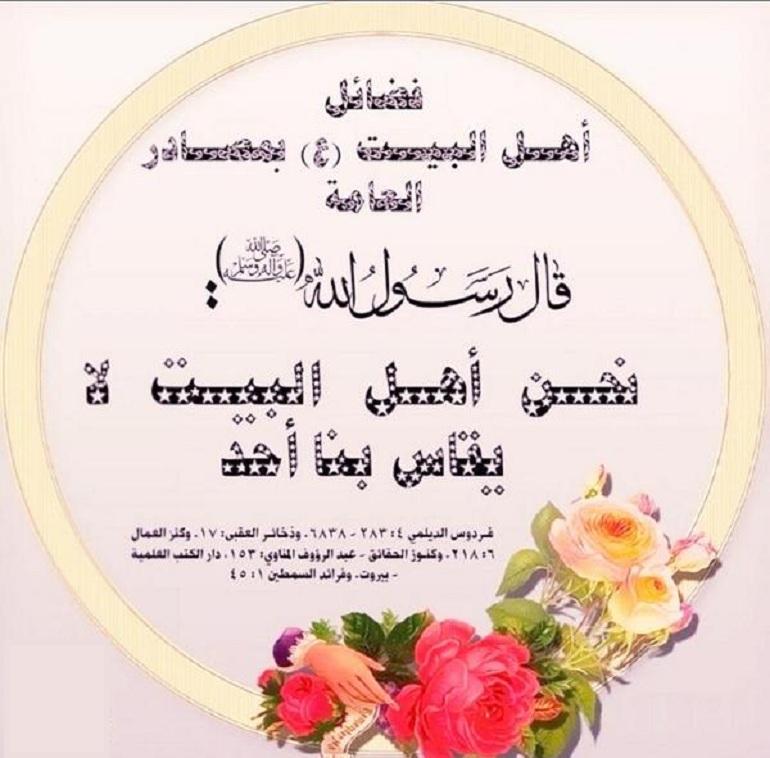 فضائل
أهل البيت (ع) بمصادر
العامة
قال رسول الله (صلى الله عليه وآله وسلم) :
نحن أهل البيت لا
يقاس بنا أحد
فردوس الديلمي ٤: ٢٨٣ - ٦٨٣٨. وذخائر العقبى: ١٧. وكنز العمال
٦: ٢١٨. وكنوز الحقائق - عبد الرؤوف المناوي: ١٥٣، دار الكتب العلمية
- بيروت. وفرائد السمطين ١: ٤٥